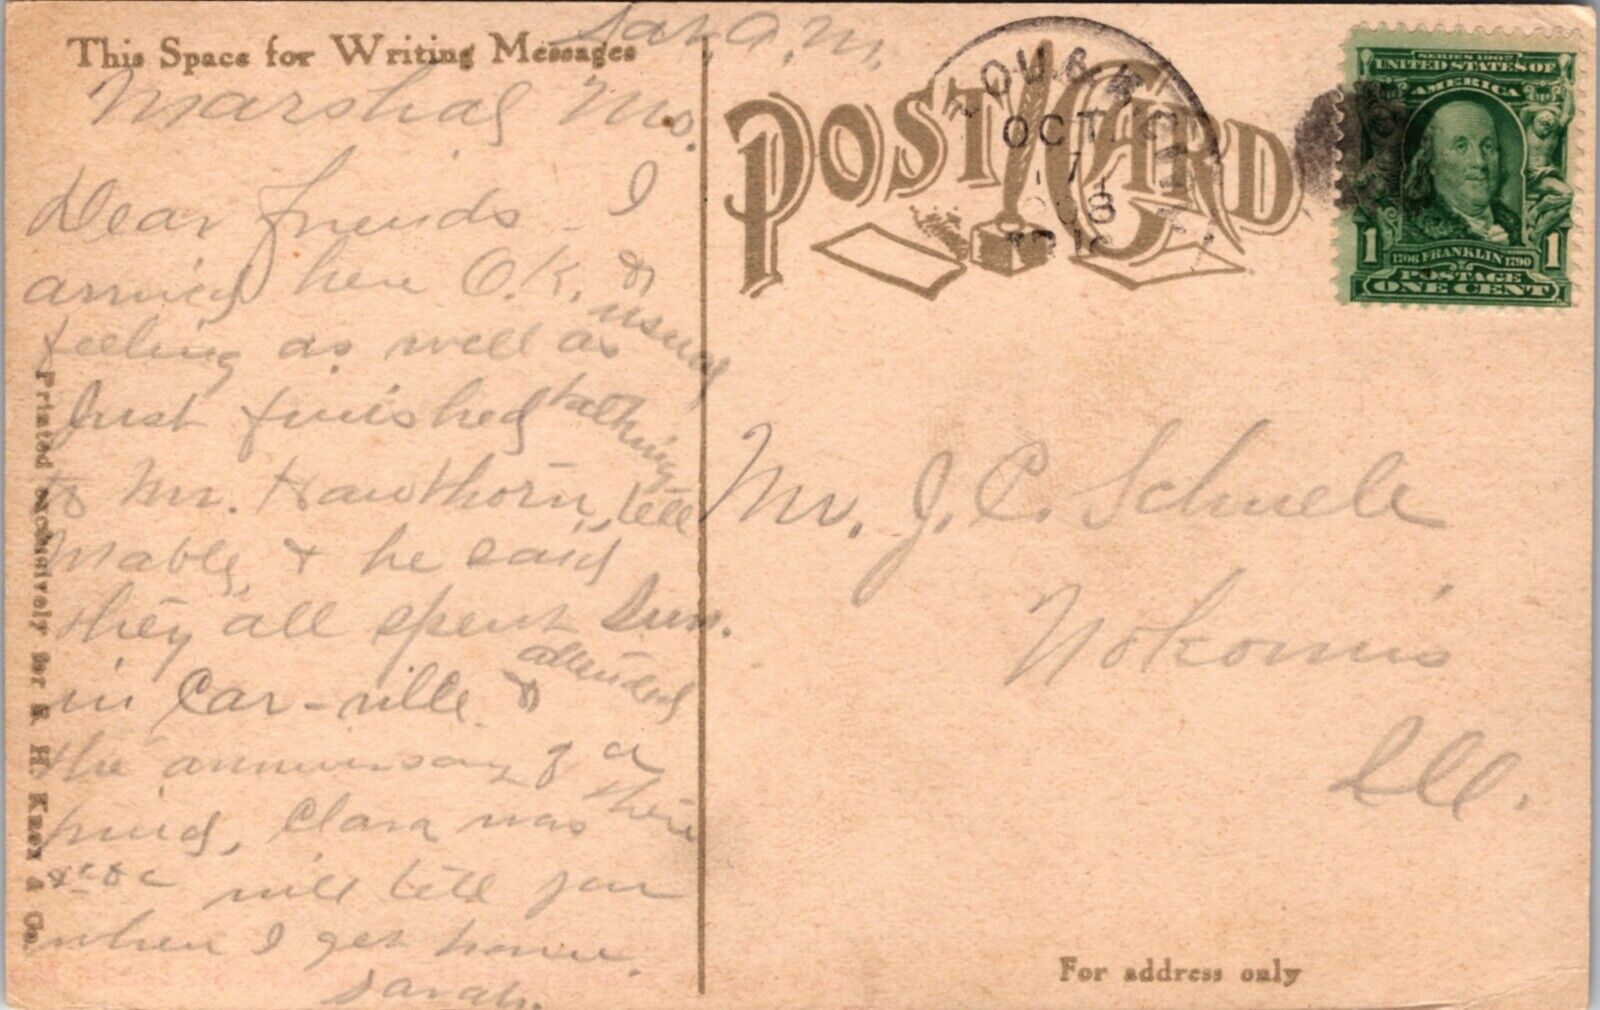 This Space for Writing Messages
Sat. A.M.
Marshal Mo.
Dear friends - I
arrived here O.K. &
feeling as well as usual,
Just finished talking
to Mr. Hawthorn, tell
Mable, & he said
they all spent Sun.
in Car-ville & attended
the anniversary of a
friend, Clara was there
&c &c will tell you
when I get home.
Sarah.
Printed exclusively for S. H. Knox & Co.
POST CARD
OCT
7
SERIES 1902
UNITED STATES OF
AMERICA
1 1706 FRANKLIN 1790 1
POSTAGE
ONE CENT
Mr. J. C. Schuele
Nokomis
Ill.
For address only